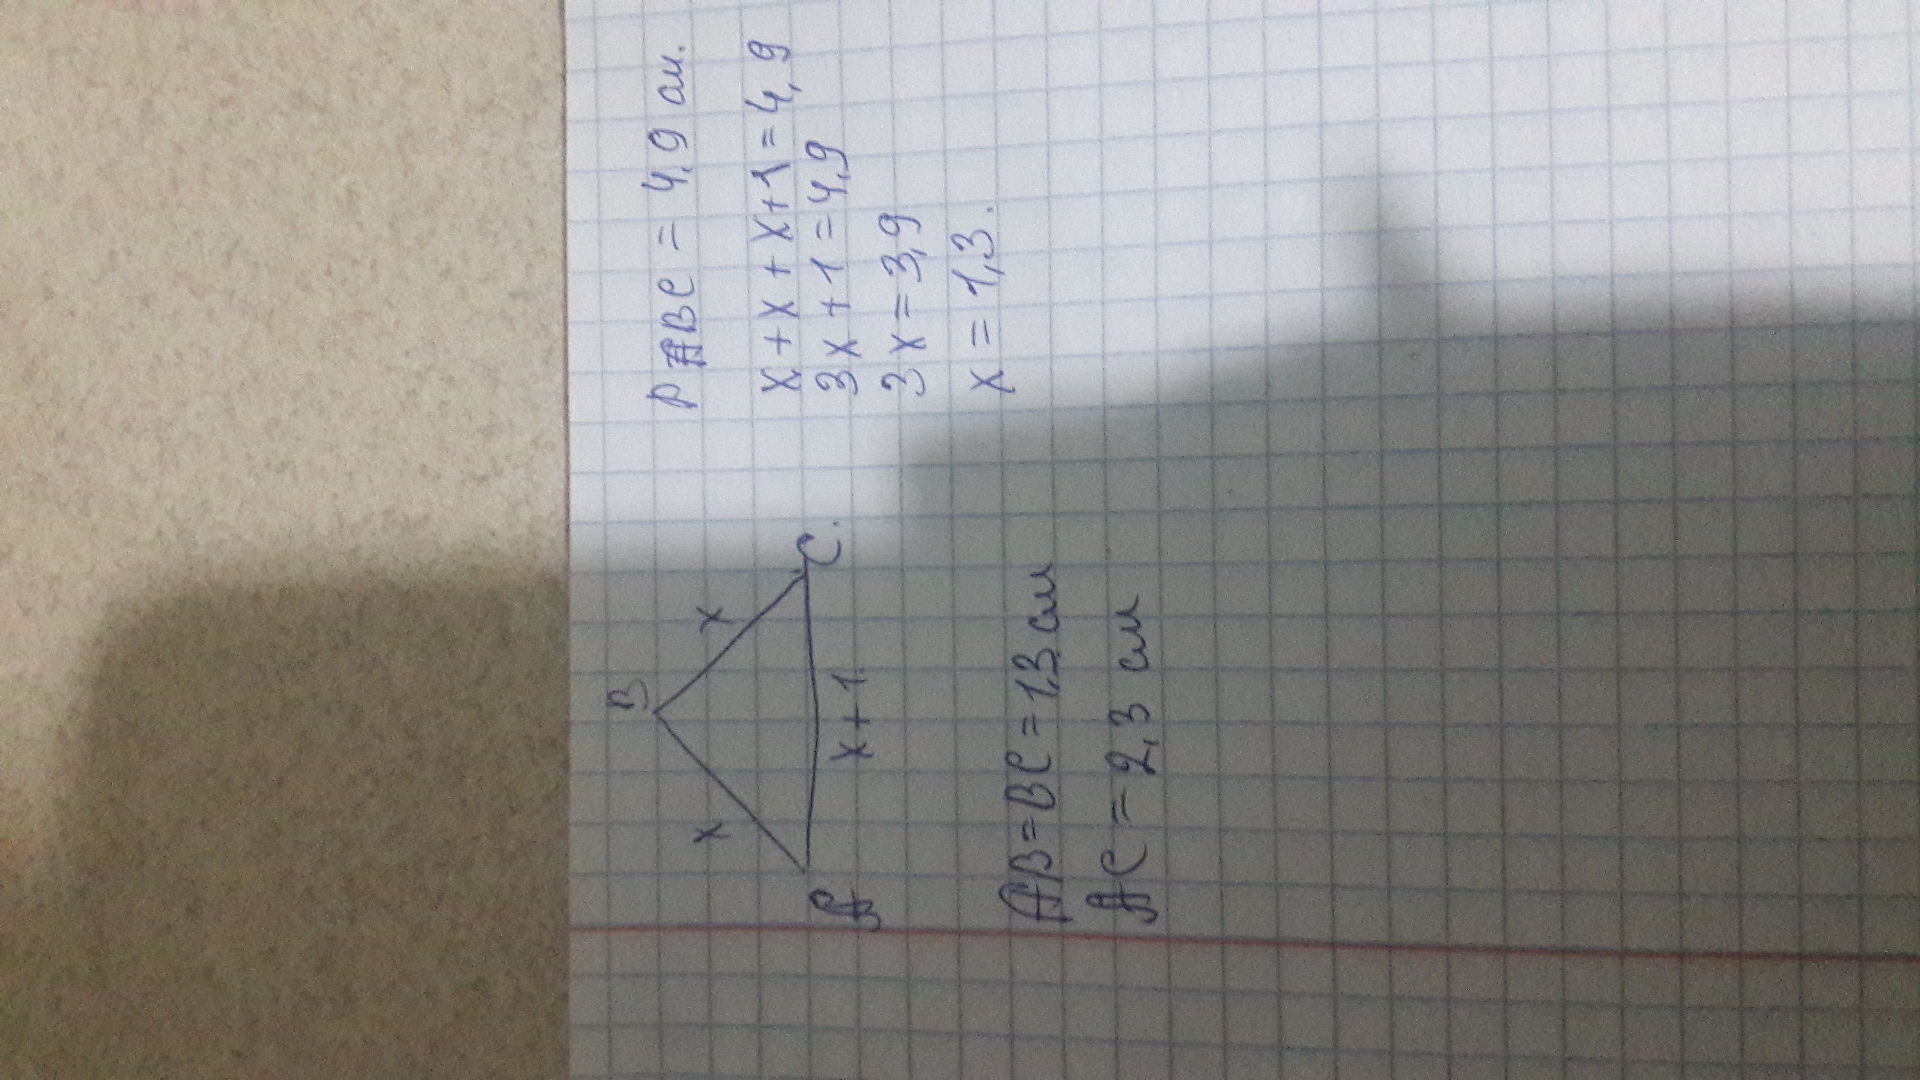 B
x x
A C.
x+1
P ABC = 4,9 см.
x+x+x+1=4,9
3x+1=4,9
3x=3,9
x=1,3.
AB=BC=1,3 см
AC=2,3 см